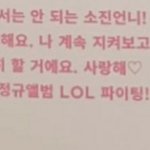 서는 안 되는 소진언니!
해요. 나 계속 지켜보고
할 거에요. 사랑해♡
정규앨범 LOL 파이팅!